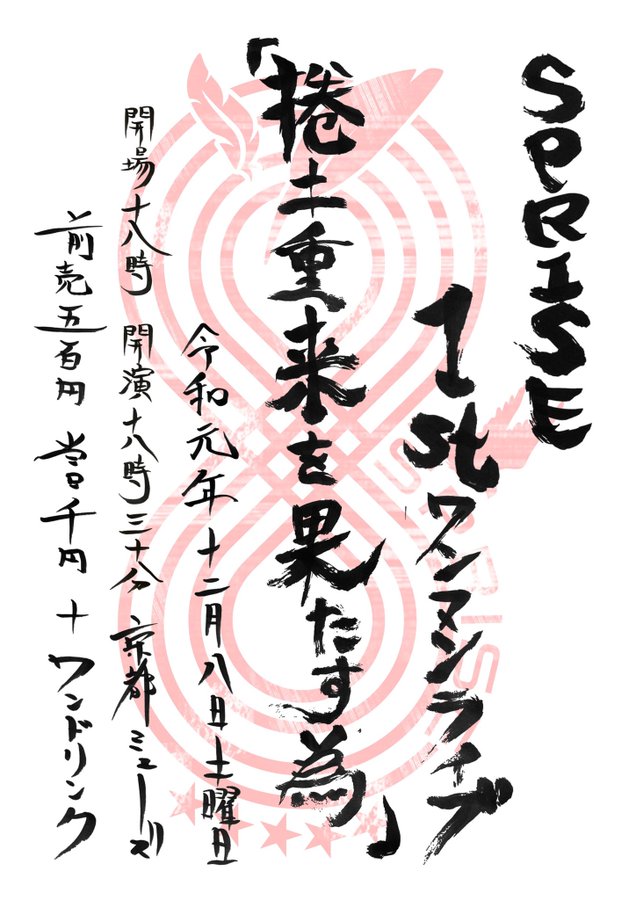 SPRISE
1stワンマンライブ
「捲土重来を果たす為」
令和元年十二月八日土曜日
開場十八時 開演十八時三十分 京都ミューズ
前売五百円 当日千円 + ワンドリンク
SPRISE